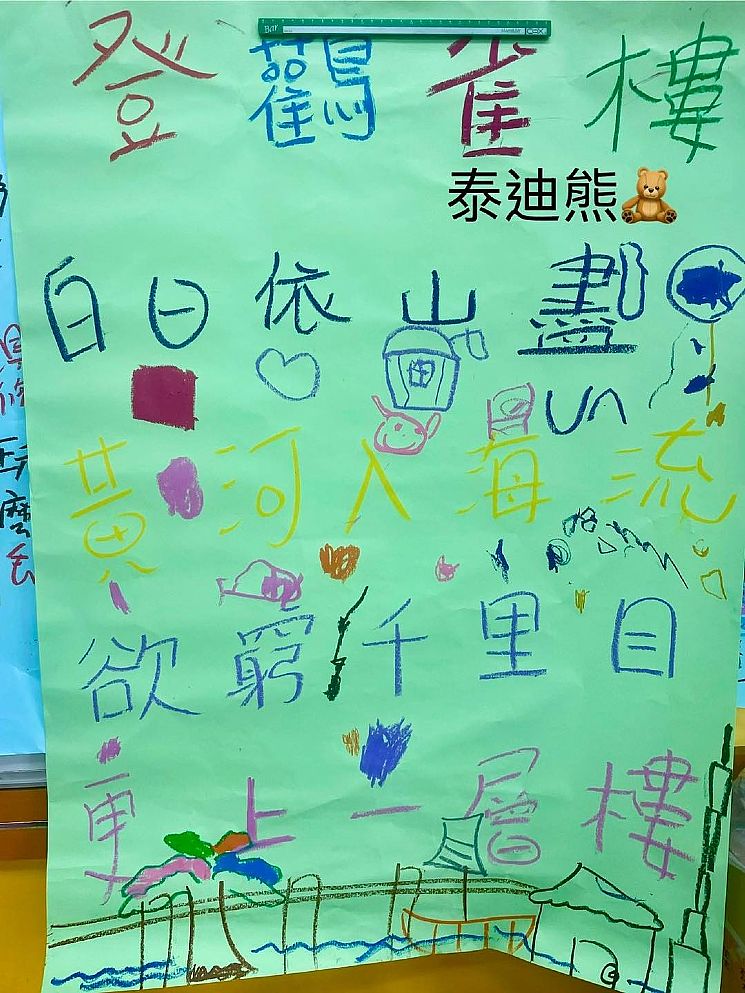 登鸛雀樓
泰迪熊
白日依山盡
黃河入海流
欲窮千里目
更上一層樓